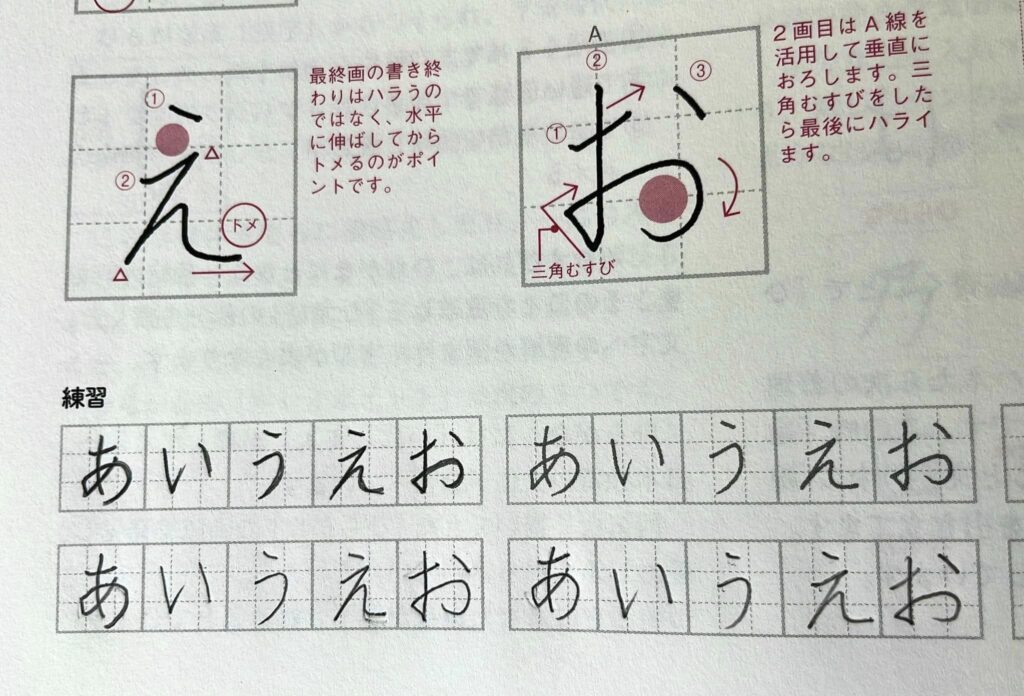 ①
え
②
トメ
最終画の書き終
わりはハラうの
ではなく、水平
に伸ばしてから
トメるのがポイ
ントです。
A
②
③
①
お
三角むすび
2画目はA線を
活用して垂直に
おろします。三
角むすびをした
ら最後にハライ
ます。
練習
あいうえお あいうえお
あいうえお あいうえお